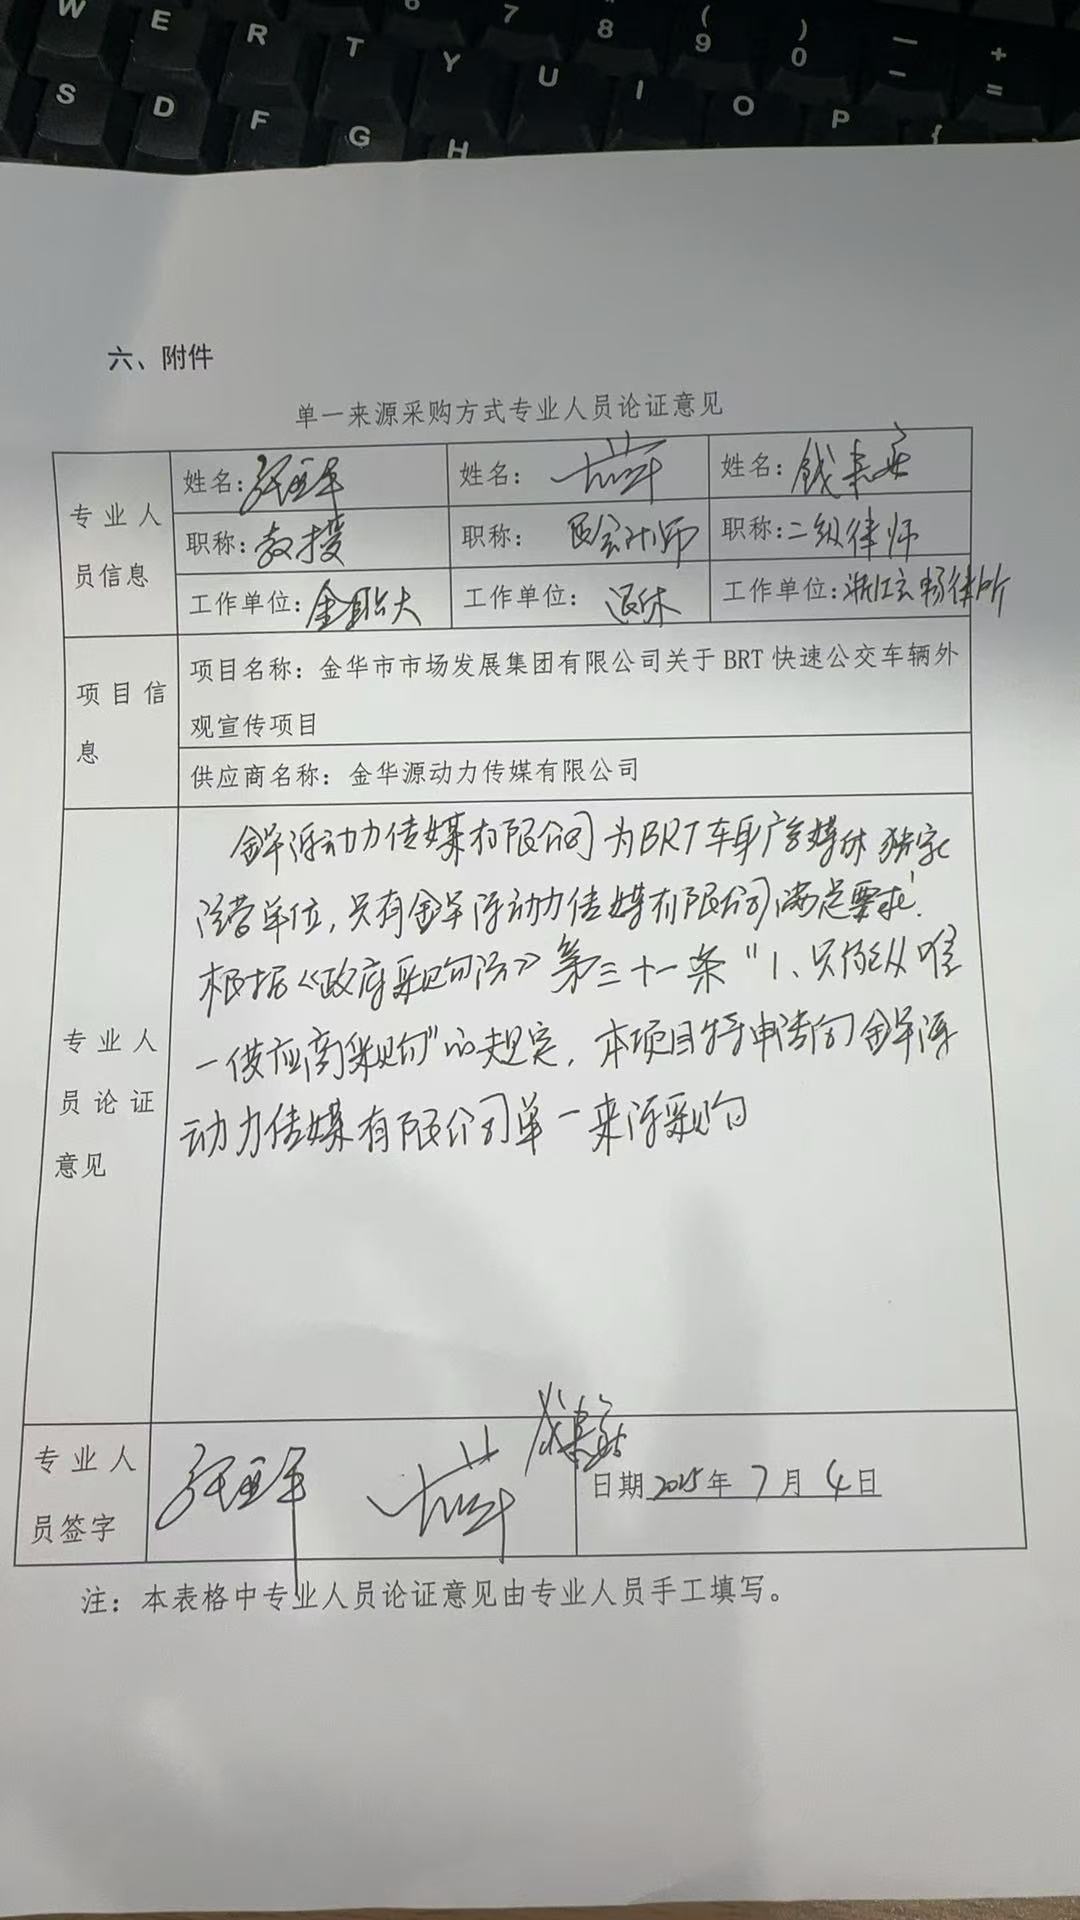 W E R T Y U I O P {
6 7 8 ( 9 ) 0 — - + =
S D F G H
六、附件
单一来源采购方式专业人员论证意见
专业人员信息
姓名： 姓名： 姓名：钱
职称：教授 职称：会计师 职称：二级律师
工作单位：金职大 工作单位：退休 工作单位：浙江 律所
项目信息
项目名称：金华市市场发展集团有限公司关于 BRT 快速公交车辆外
观宣传项目
供应商名称：金华源动力传媒有限公司
专业人员论证意见
金华源动力传媒有限公司为BRT车身广告媒体独家
运营单位，只有金华源动力传媒有限公司满足要求.
根据《政府采购法》第三十一条“1、只能从唯
一供应商采购”的规定，本项目特申请向金华源
动力传媒有限公司单一来源采购
专业人员签字
日期 2025年 7 月 4 日
注：本表格中专业人员论证意见由专业人员手工填写。